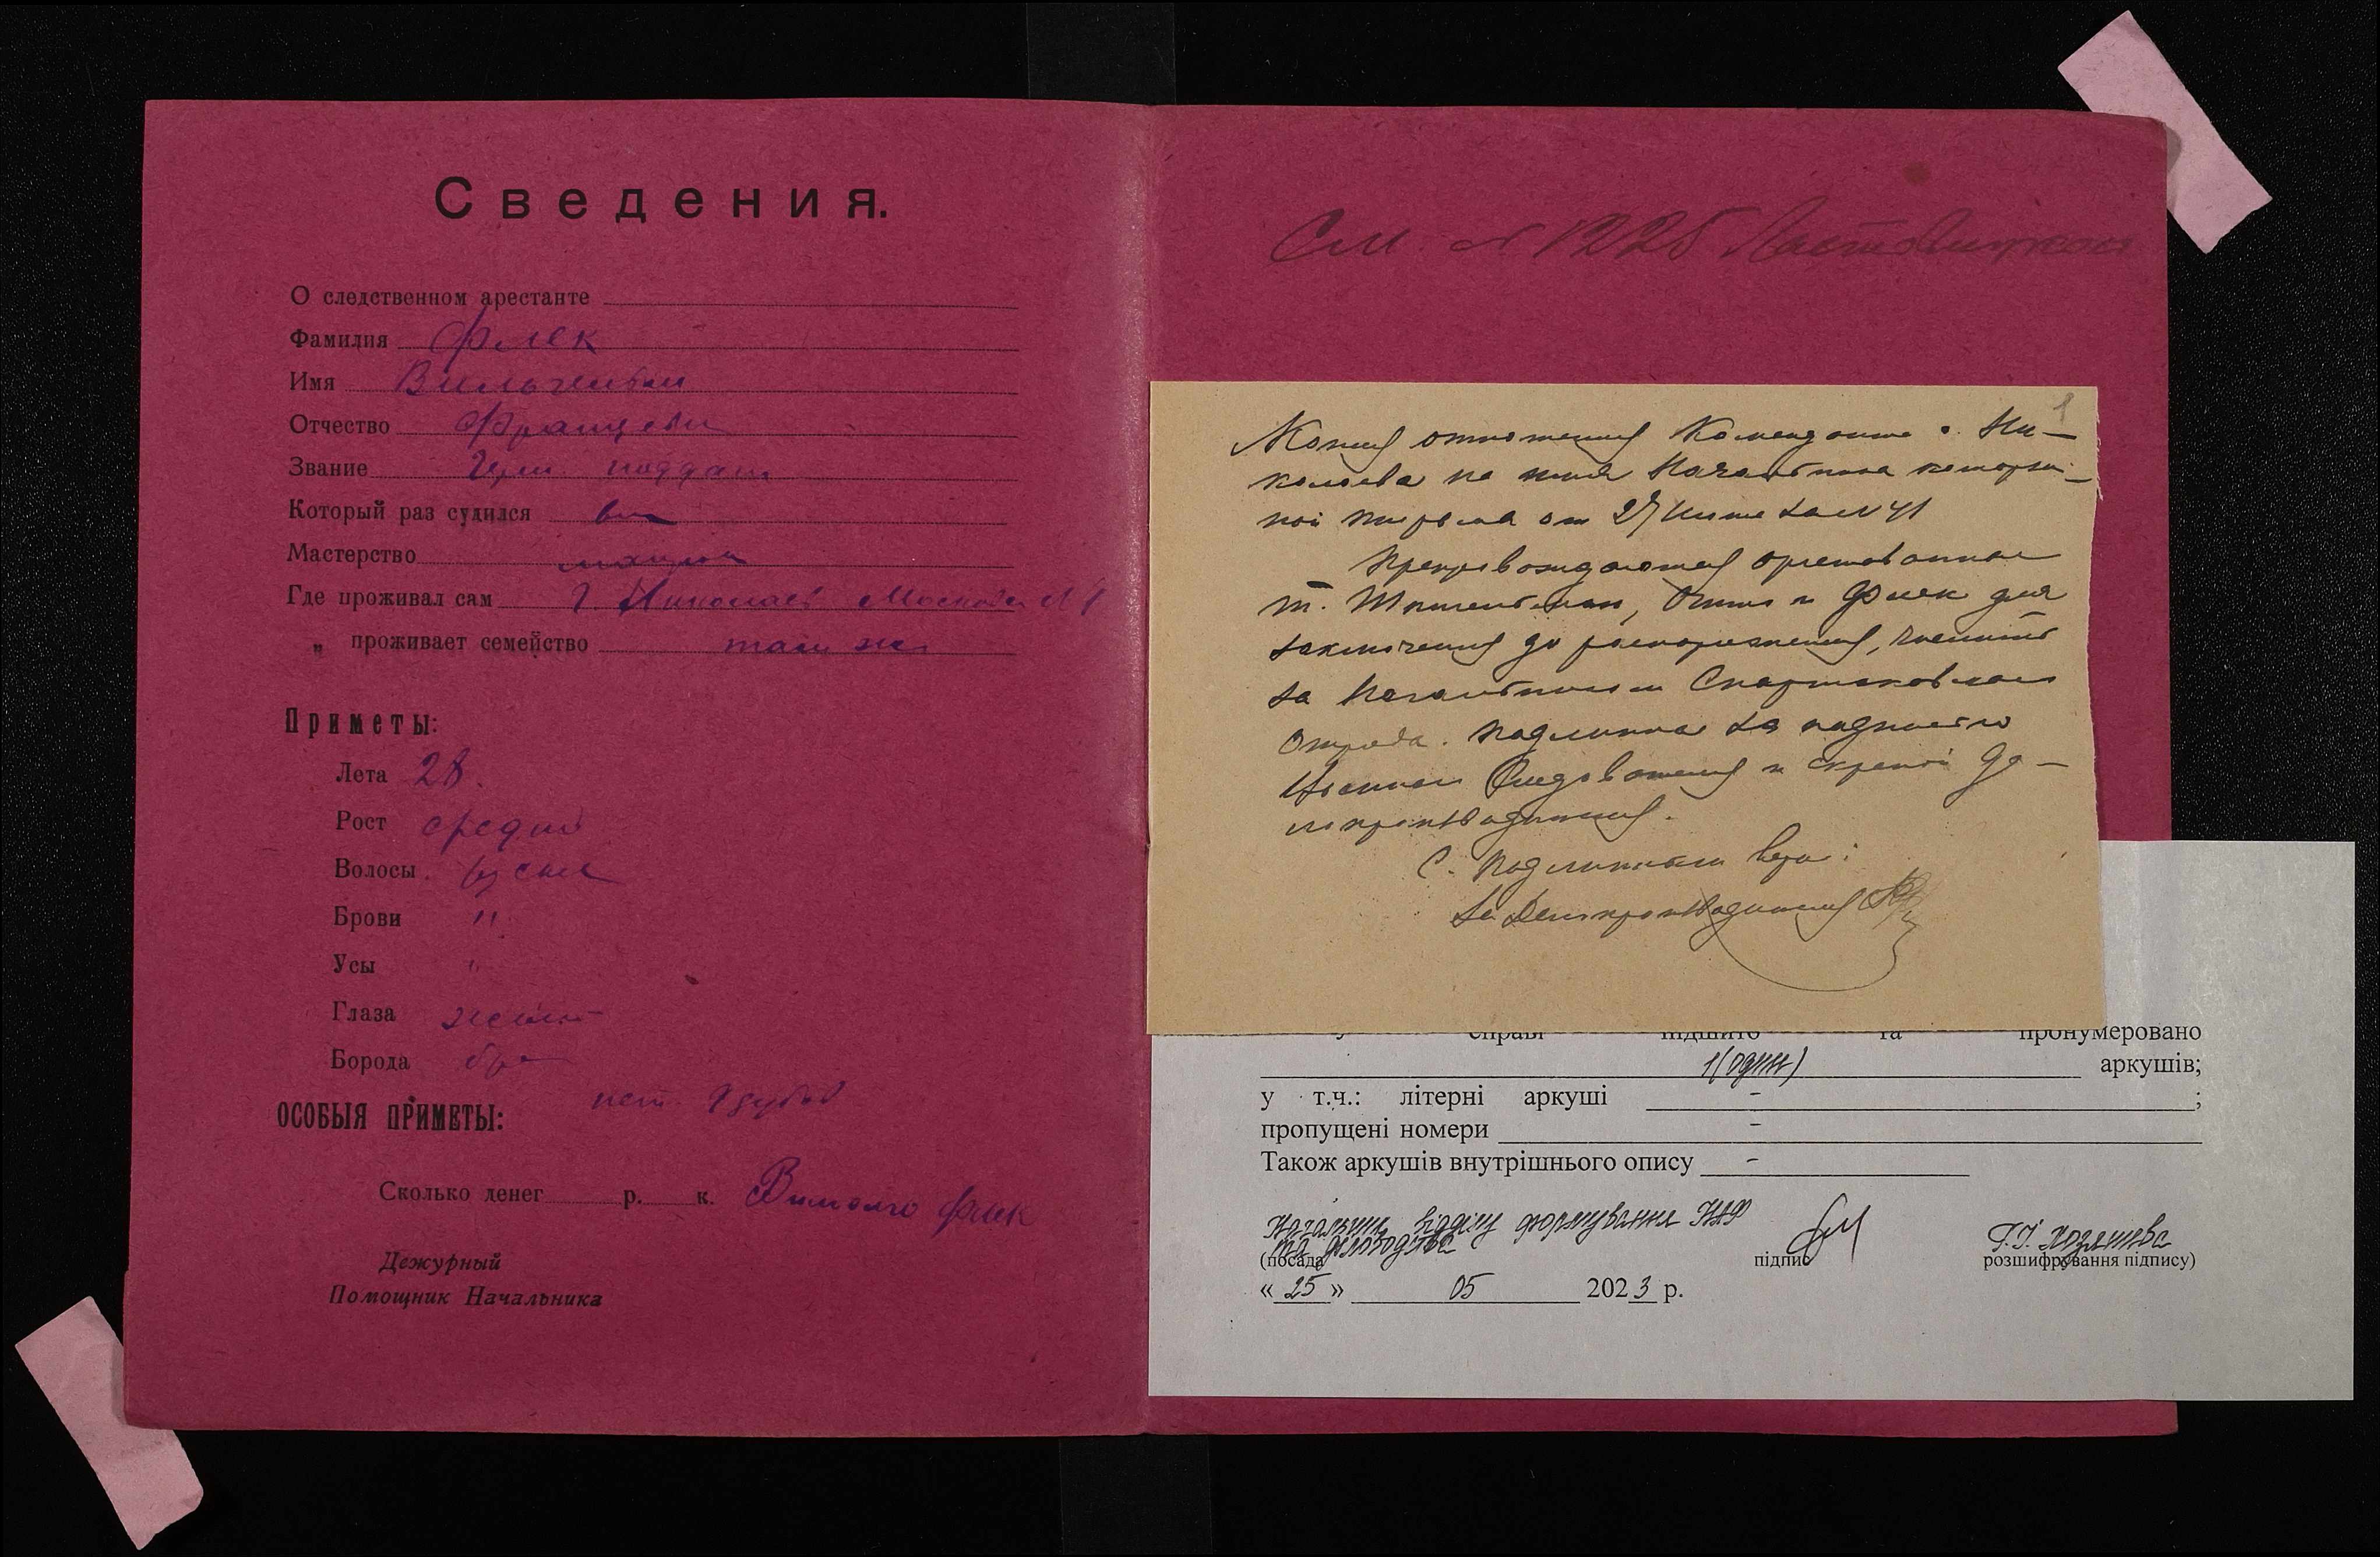 Сведения.
О следственном арестанте
Фамилия Флек
Имя Вильгельм
Отчество Францевич
Звание Герм. поддан.
Который раз судился
Мастерство
Где проживал сам г. Николаев Московск. № 1
„ проживает семейство там же
Приметы:
Лета 28.
Рост средний
Волосы русые
Брови "
Усы "
Глаза
Борода бре
ОСОБЫЯ ПРИМЕТЫ: нет. 9 зубов
Сколько денег р. к. Флек
Дежурный
Помощник Начальника
См. № 1225
1
Копия отношения Коменданта г. Ни-
колаева на имя Начальника каторж-
ной тюрьмы от 27 Июня за № 41
Препровождаются арестованные
т. и Флек для
заключения до распоряжения, числить
за Начальником Спартаковского
Отряда. Подлинное за подписью
Военного Следователя и скрепой де-
лопроизводителя.
С подлинным верно:
За Делопроизводителя
У справі підшито та пронумеровано
1 (один) аркушів;
у т.ч.: літерні аркуші - ;
пропущені номери -
Також аркушів внутрішнього опису -
Начальник відділу формування НАФ
та діловодства
(посада підпис розшифрування підпису)
« 25 » 05 2023 р.